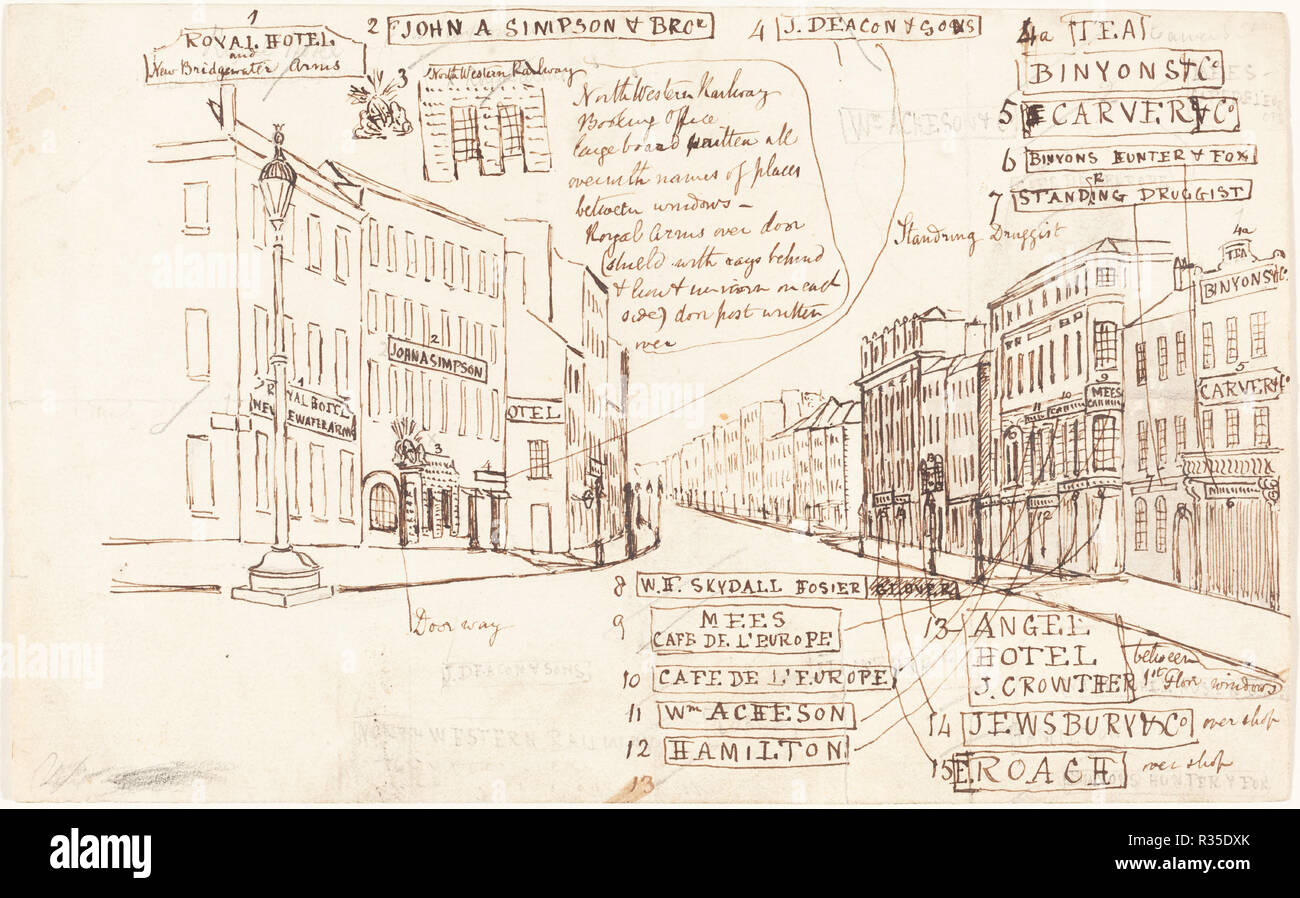 1
ROYAL HOTEL
and
New Bridgewater Arms
2 JOHN A SIMPSON & BROR
3
North Western Railway
North Western Railway
Booking Office
large board written all
over with names of places
between windows -
Royal Arms over door
(shield with rays behind
& lion & unicorn on each
side) door post written
over
4 J. DEACON & SONS
4a TEA
BINYONS & Co
5 CARVER & Co
6 BINYONS HUNTER & FOX
7 STANDING DRUGGIST
R
Standring Druggist
4a
TEA
BINYONS & Co
5
CARVER & Co
2
JOHN A SIMPSON
1
ROYAL HOTEL
NEW EWATER ARMS
3
4
OTEL
9
MEES
11
10
12
7
6
8
15
14
Doorway
8 W.H. SKYDALL HOSIER
9 MEES
CAFE DE L'EUROPE
10 CAFE DE L'EUROPE
11 Wm ACHESON
12 HAMILTON
13 ANGEL
HOTEL
J. CROWTHER
between
1st floor windows
14 JEWSBURY & Co over shop
15 E. ROAGH over shop
13
alamy
alamy
Image ID: R35DXK
www.alamy.com